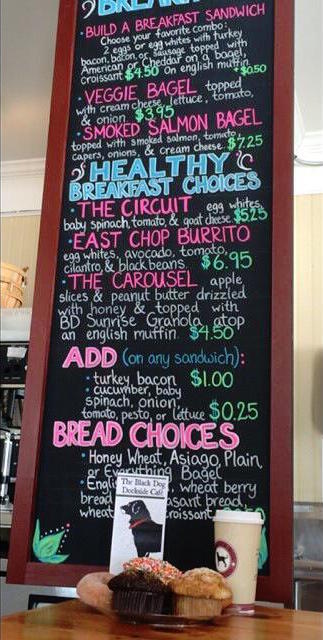 • BUILD A BREAKFAST SANDWICH
Choose your favorite combo:
2 eggs or egg whites with turkey
bacon, bacon, or sausage topped with
American or Cheddar on a bagel,
croissant $4.50 on english muffin +$0.50
• VEGGIE BAGEL topped
with cream cheese, lettuce, tomato,
& onion $3.95
• SMOKED SALMON BAGEL
topped with smoked salmon, tomato,
capers, onions, & cream cheese $7.25
HEALTHY
BREAKFAST CHOICES
• THE CIRCUIT egg whites,
baby spinach, tomato, & goat cheese $5.25
• EAST CHOP BURRITO
egg whites, avocado, tomato,
cilantro, & black beans $6.95
• THE CAROUSEL apple
slices & peanut butter drizzled
with honey & topped with
BD Sunrise Granola atop
an english muffin $4.50
ADD (on any sandwich):
• turkey, bacon $1.00
• cucumber, baby
spinach, onion,
tomato, pesto, or lettuce $0.25
BREAD CHOICES
• Honey Wheat, Asiago, Plain,
or Everything Bagel
wheat berry
bread
wheat
The Black Dog
Dockside Café